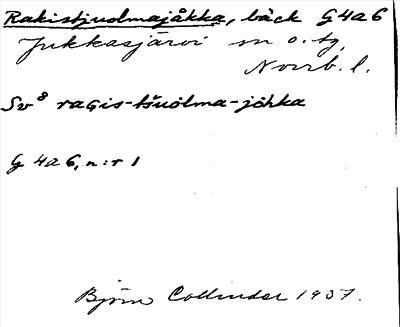 Rakistjuolmajåkka, bäck G4a6
Jukkasjärvi sn o. tg,
Norrb. l.
Sv⁸ raGis-tšuolma-jåhka
G 4a 6, n:r 1
Björn Collinder 1937.